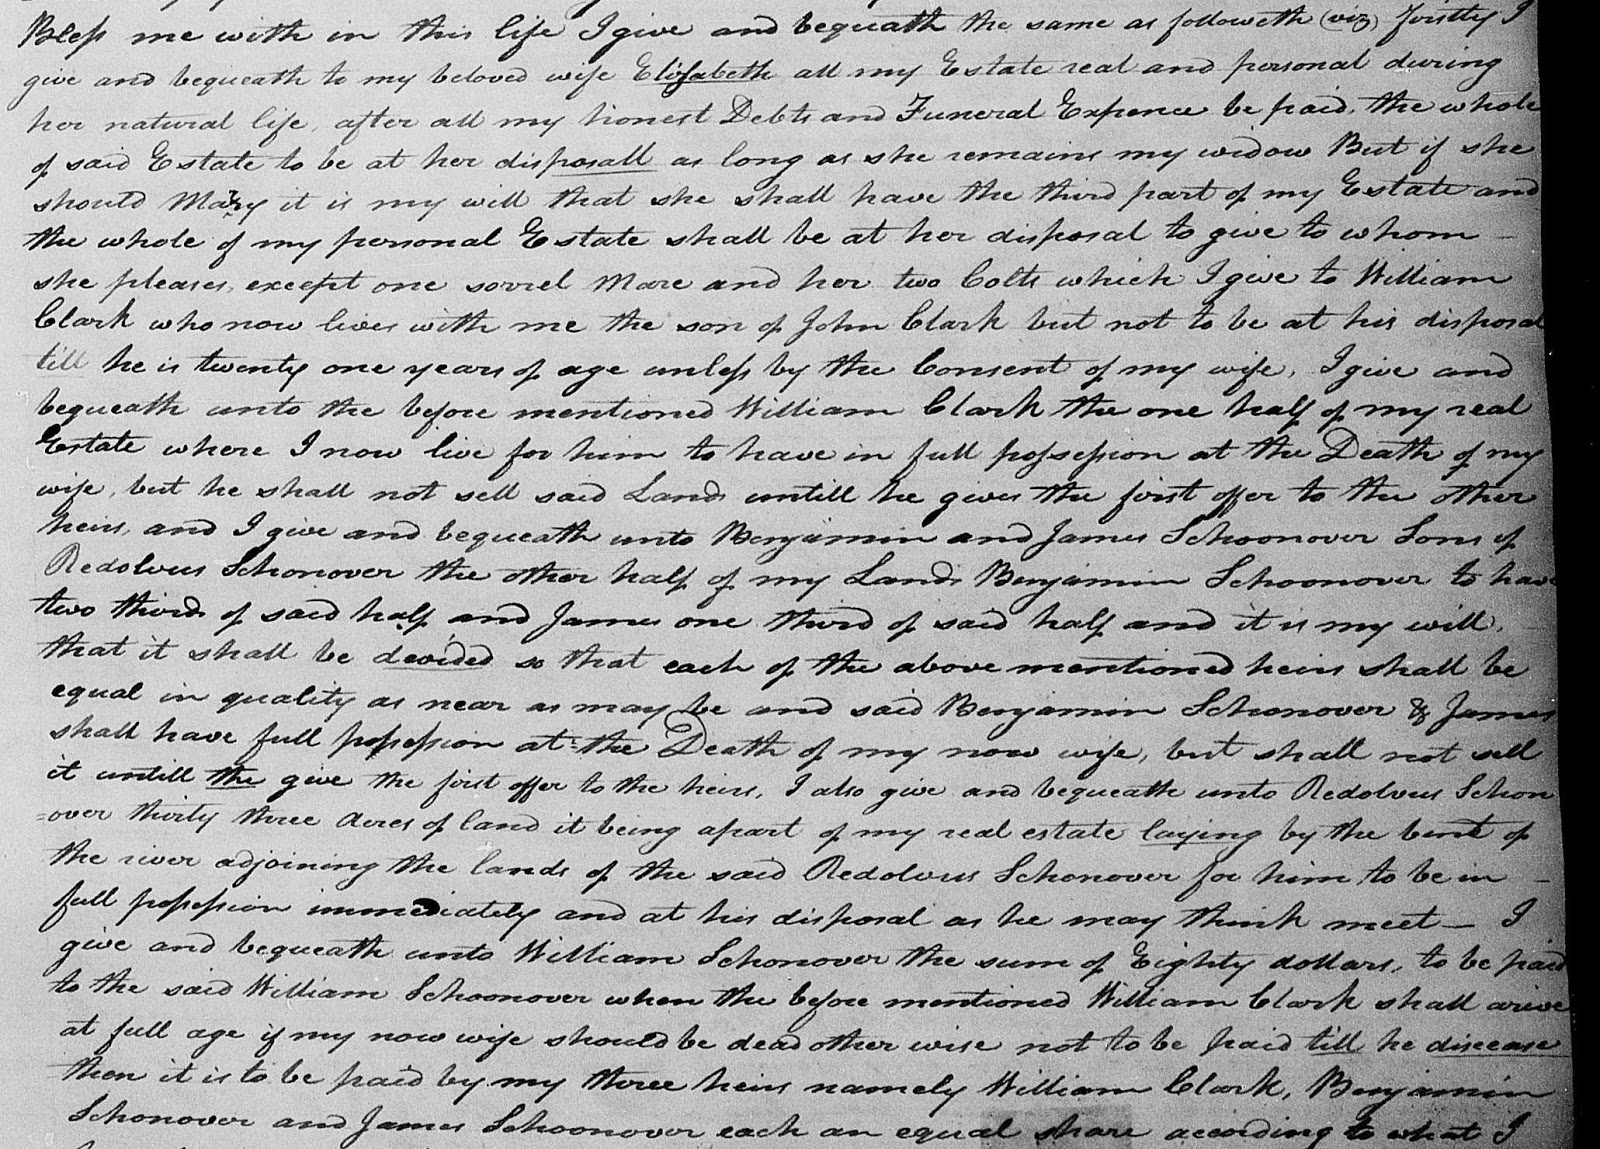 Bless me with in this life I give and bequeath the same as followeth (viz) Firstly I
give and bequeath to my beloved wife Elizabeth all my Estate real and personal during
her natural life, after all my honest Debts and Funeral Expence be paid, the whole
of said Estate to be at her disposall as long as she remains my widow But if she
should Mary it is my will that she shall have the third part of my Estate and
the whole of my personal Estate shall be at her disposal to give to whom
she pleases, except one sorrel Mare and her two Colts which I give to William
Clark who now lives with me the son of John Clark but not to be at his disposal
till he is twenty one years of age unless by the Consent of my wife, I give and
bequeath unto the before mentioned William Clark the one half of my real
Estate where I now live for him to have in full possession at the Death of my
wife, but he shall not sell said Lands untill he gives the first offer to the other
heirs, and I give and bequeath unto Benjamin and James Schoonover Sons of
Redolvus Schonover the other half of my Lands Benjamin Schoonover to have
two thirds of said half and James one third of said half and it is my will,
that it shall be devided so that each of the above mentioned heirs shall be
equal in quality as near as may be and said Benjamin Schonover & James
shall have full possession at the Death of my now wife, but shall not sell
it untill the give the first offer to the heirs, I also give and bequeath unto Redolvus Schon
=over thirty three Acres of land it being apart of my real estate laying by the bent of
the river adjoining the lands of the said Redolvus Schonover for him to be in
full possession immediately and at his disposal as he may think meet — I
give and bequeath unto William Schonover the sum of Eighty dollars, to be paid
to the said William Schoonover when the before mentioned William Clark shall arive
at full age if my now wife should be dead other wise not to be paid till he discease
then it is to be paid by my three heirs namely William Clark, Benjamin
Schonover and James Schoonover each an equal share according to what I